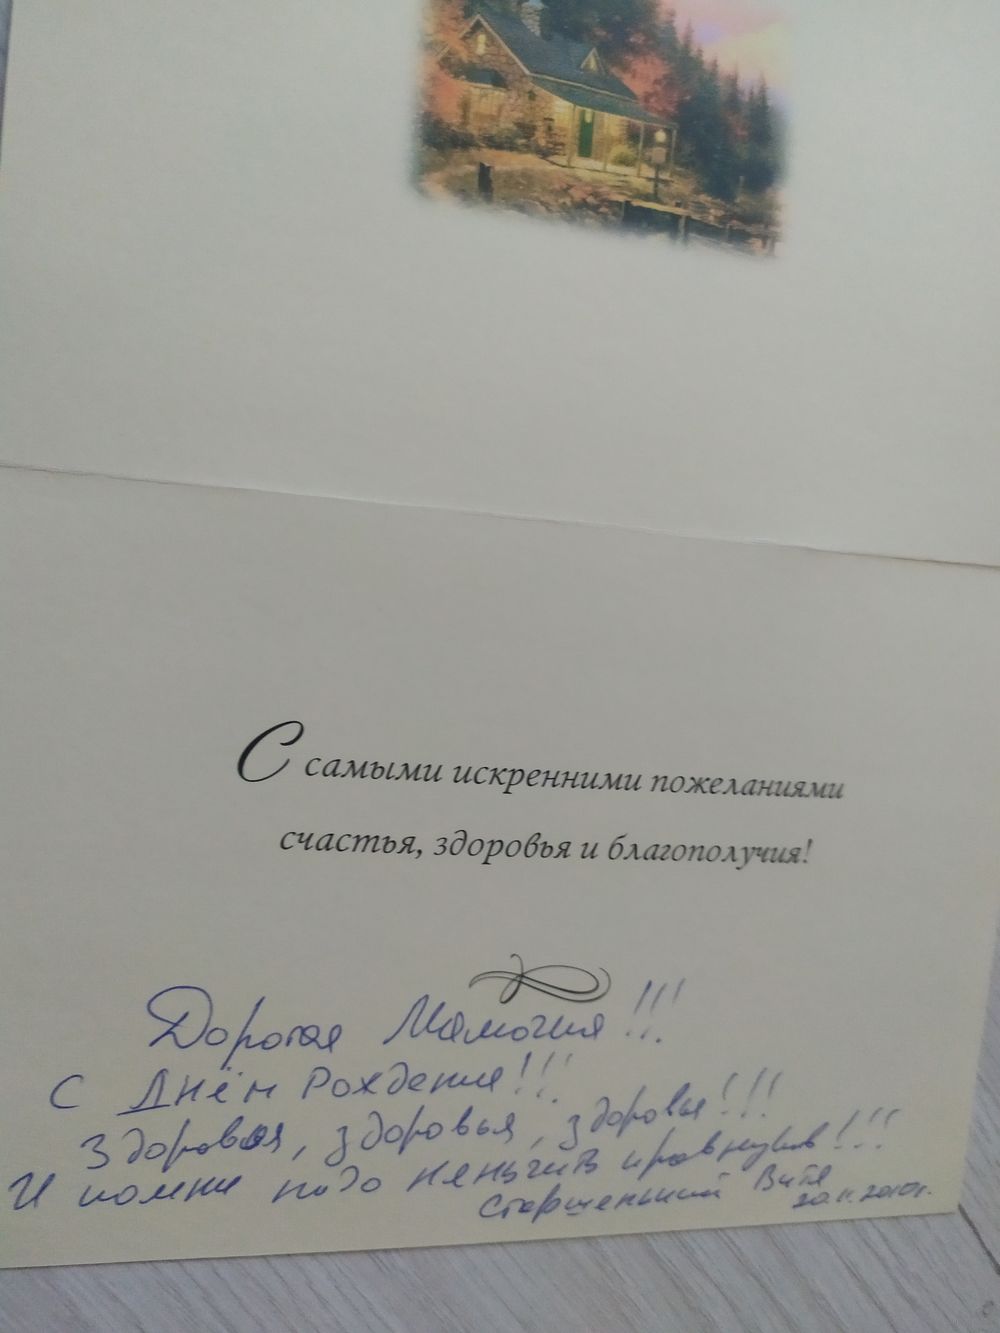 С самыми искренними пожеланиями
счастья, здоровья и благополучия!
Дорогая Мамочка!!!
С Днём Рождения!!!
Здоровья, здоровья, здоровья!!!
И помни надо няньчить правнуков!!!
Старшенький Витя
20.11.2010г.